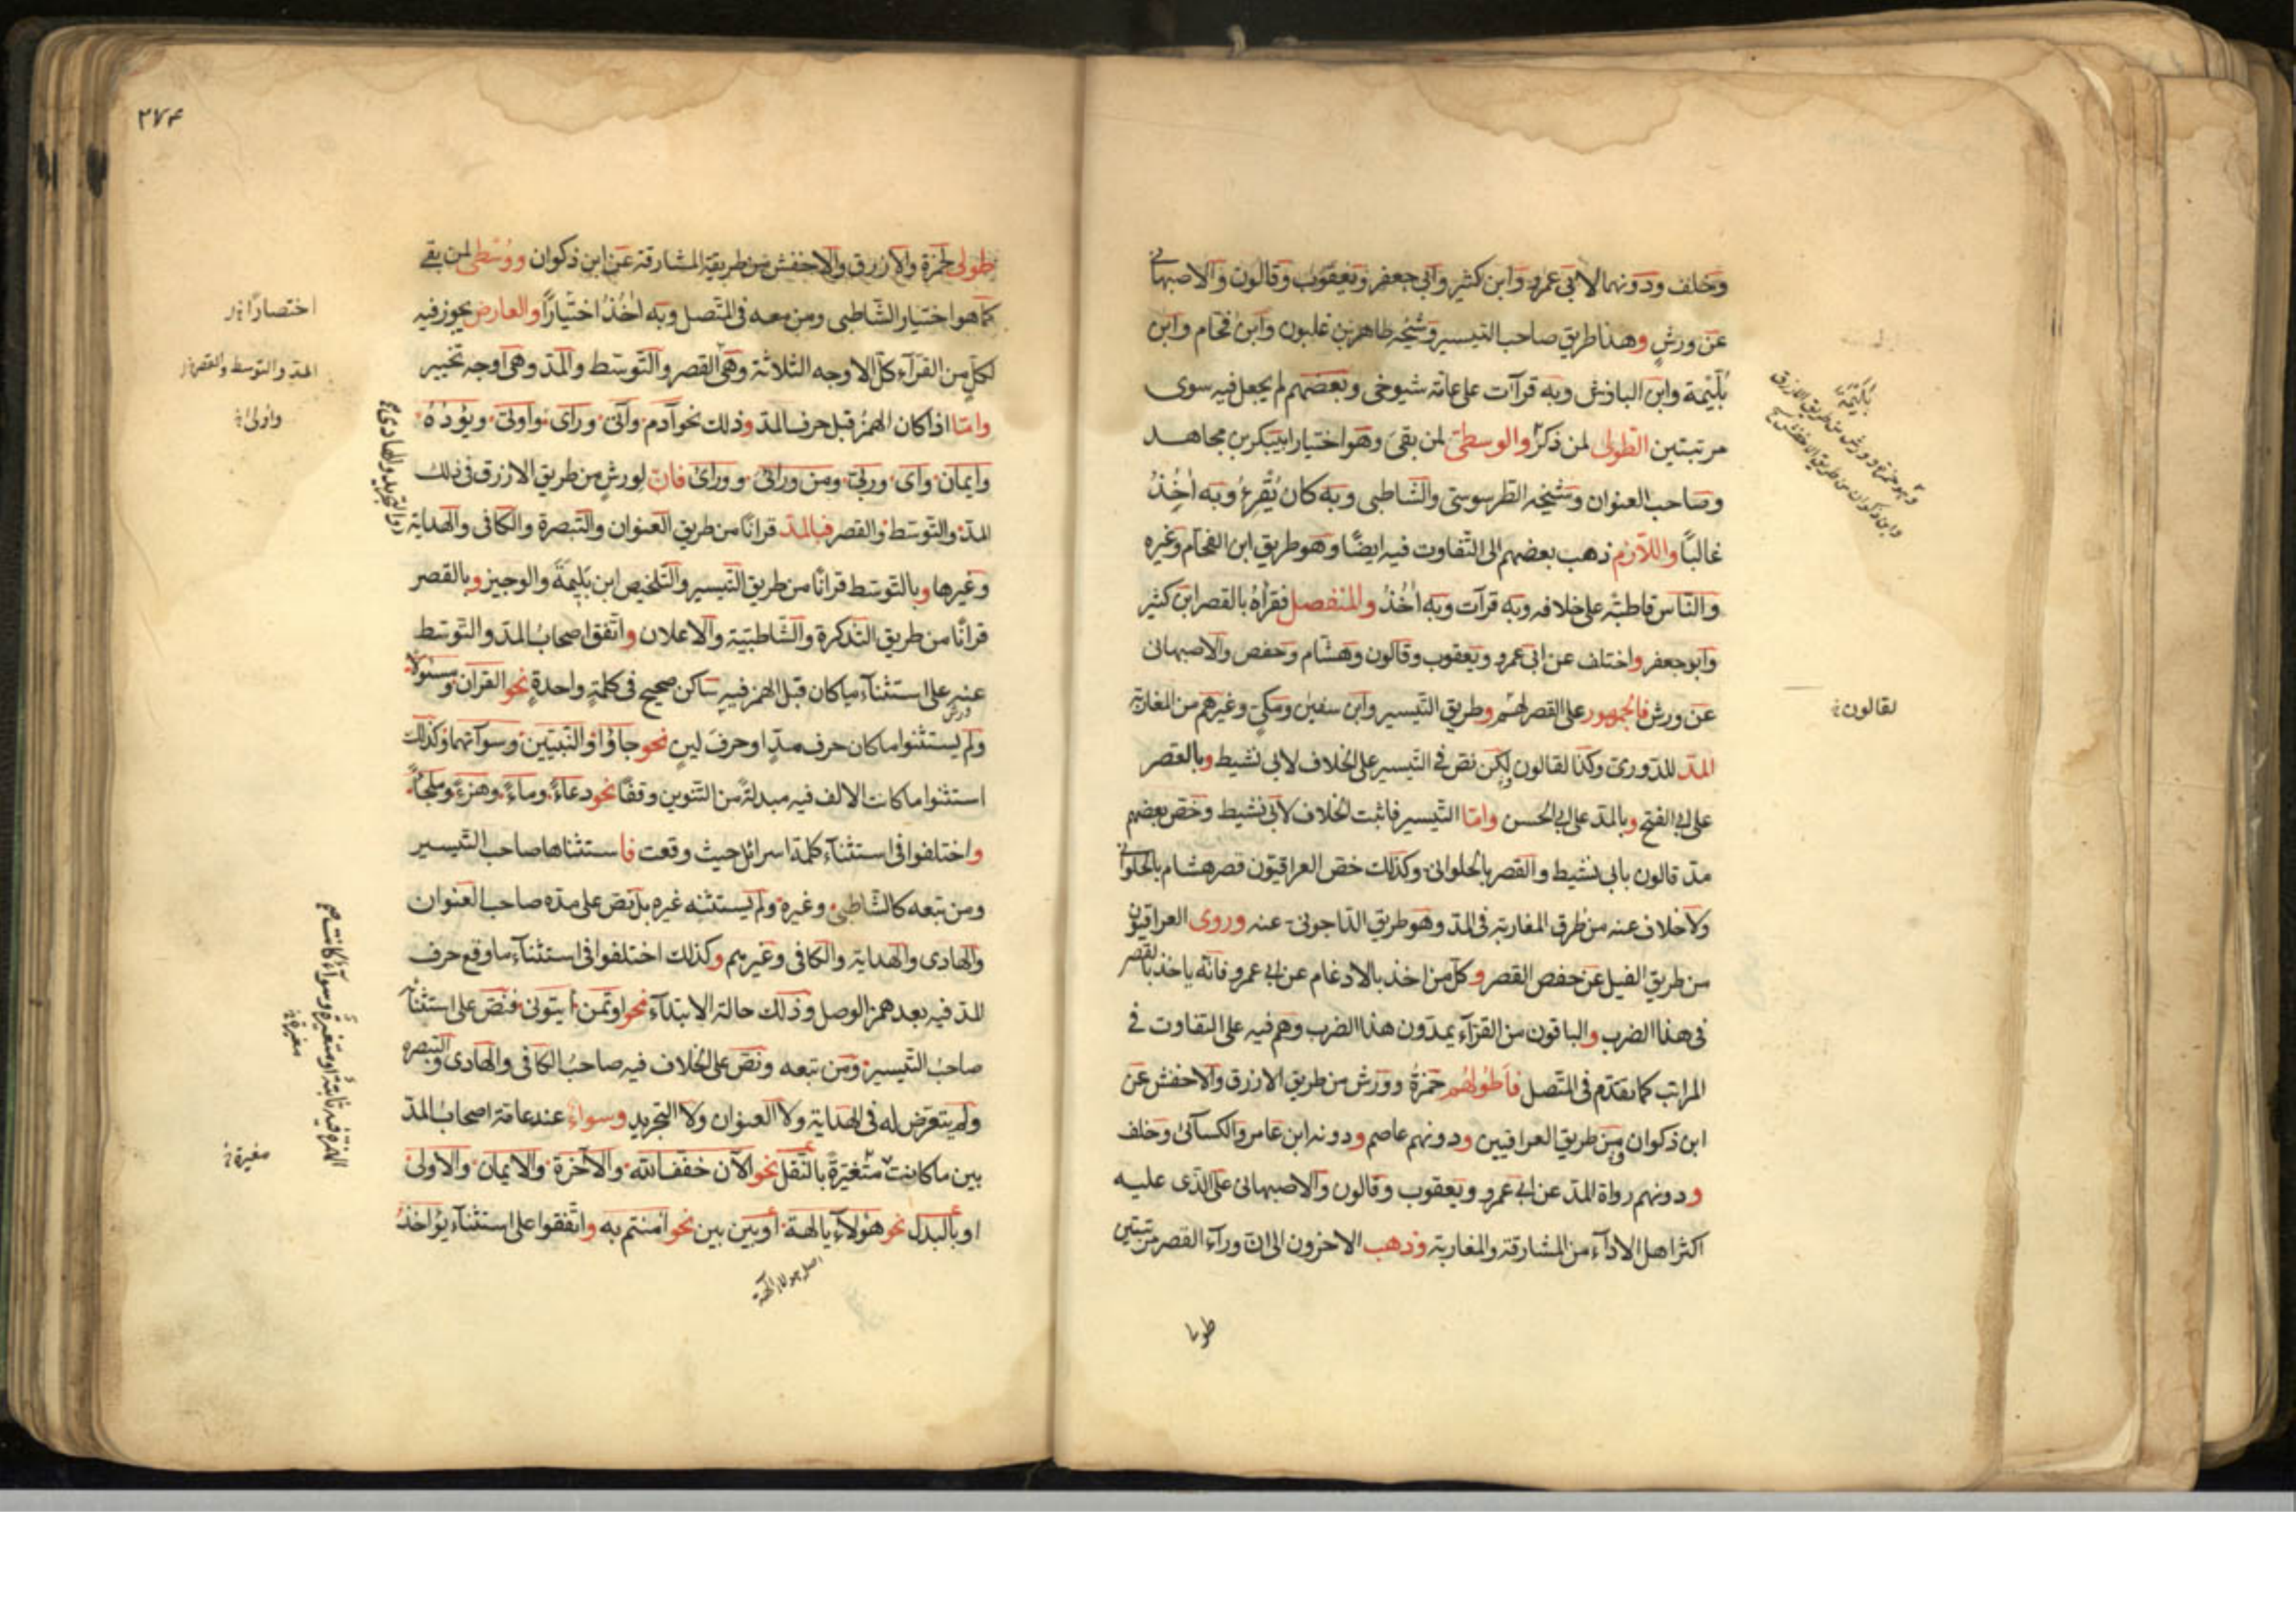 وخلف ودونهما لابى عمرو وابن كثير وابى جعفر ويعقوب وقالون والاصبهانى
عن ورش وهذا طريق صاحب التيسير وشيخه طاهر بن غلبون وابن فحام وابن
بليمة وابن الباذش وبه قرآت على عامة شيوخى وبعضهم لم يجعل فيه سوى
مرتبتين الطولى لمن ذكر والوسطى لمن بقى وهو اختيار ابيبكر بن مجاهد
وصاحب العنوان وشيخه الطرسوسى والشاطبى وبه كان يقرئ وبه اخذ
غالبا واللازم ذهب بعضهم الى التفاوت فيه ايضا وهو طريق ابن الفحام وغيره
والناس قاطبة على خلافه وبه قرآت وبه اخذ والمنفصل فقرأه بالقصر ابن كثير
وابو جعفر واختلف عن ابى عمرو ويعقوب وقالون وهشام وحفص والاصبهانى
عن ورش فالجمهور على القصر لهم وطريق التيسير وابن سفين ومكى وغيرهم من المغاربة
المد للدورى وكذا لقالون لكن نص فى التيسير على الخلاف لابى نشيط وبالقصر
على ابى الفتح وبالمد على ابى الحسن واما التيسير فاثبت الخلاف لابى نشيط وخص بعضهم
مد قالون بابى نشيط والقصر بالحلوانى وكذلك خص العراقيون قصر هشام بالحلوانى
ولا خلاف عنه من طرق المغاربة فى المد وهو طريق الداجونى عنه وروى العراقيون
من طريق الفيل عن حفص القصر وكل من اخذ بالادغام عن ابى عمرو فانه ياخذ بالقصر
فى هذا الضرب والباقون من القرآء يمدون هذا الضرب وهم فيه على التفاوت فى
المراتب كما تقدم فى المتصل فاطولهم حمزة وورش من طريق الازرق والاخفش عن
ابن ذكوان من طريق العراقيين ودونهم عاصم ودونه ابن عامر والكسآئى وخلف
ودونهم رواة المد عن ابى عمرو ويعقوب وقالون والاصبهانى على الذى عليه
اكثر اهل الادآء من المشارقة والمغاربة وذهب الاخرون الى ان ورآء القصر مرتبتين
بليمة
وهو حمزة وورش من طريق الازرق
وابن ذكوان من طريق الاخفش
لقالون
طولى
٢٧٤
طولى لحمزة والازرق والاخفش من طريقة المشارقة عن ابن ذكوان ووسطى لمن بقى
كما هو اختيار الشاطبى ومن معه فى المتصل وبه اخذ اختيارا والعارض يجوز فيه
لكل من القرآء كل الاوجه الثلاثة وهى القصر والتوسط والمد وهى اوجه تخيير
واما اذا كان الهمز قبل حرف المد وذلك نحو آدم وآتى ورآى واوتى ويؤده
وايمان واى وربى ومن ورائى وورائ فان لورش من طريق الازرق فى ذلك
المد والتوسط والقصر فبالمد قرانا من طريق العنوان والتبصرة والكافى والهداية
وغيرها وبالتوسط قرانا من طريق التيسير والتلخيص ابن بليمة والوجيز وبالقصر
قرانا من طريق التذكرة والشاطبية والاعلان واتفق اصحاب المد والتوسط
عنه على استثناء ما كان قبل الهمز فيه ساكن صحيح فى كلمة واحدة نحو القران ومسئولا
ولم يستثنوا ما كان حرف مد او حرف لين نحو جاؤا والنبيين وسوآتهما وكذلك
استثنوا ما كانت الالف فيه مبدلة من التنوين وقفا نحو دعاء وماء وهزء وملجأ
واختلفوا فى استثناء كلمة اسرائل حيث وقعت فاستثناها صاحب التيسير
ومن تبعه كالشاطبى وغيره ولم يستثنه غيره بل نص على مده صاحب العنوان
والهادى والهداية والكافى وغيرهم وكذلك اختلفوا فى استثناء ما وقع حرف
المد فيه بعد همز الوصل وذلك حالة الابتدآء نحو اوتمن ايتونى فنص على استثنآئه
صاحب التيسير ومن تبعه ونص على الخلاف فيه صاحب الكافى والهادى والتبصره
ولم يتعرض له فى الهداية ولا العنوان ولا التجريد وسواء عند عامة اصحاب المد
بين ما كانت متغيرة بالنقل نحو الآن خفف الله والآخرة والايمان والاولى
او بالبدل نحو هؤلاء يالهة او بين بين نحو امنتم به واتفقوا على استثنآء يؤاخذ
اختصارا
المد والتوسط والقصر
واولى
والتجريد والهادى
الهمزة فيه ثابتة او متغيرة وسوآء كانت
مغيرة
مغيرة